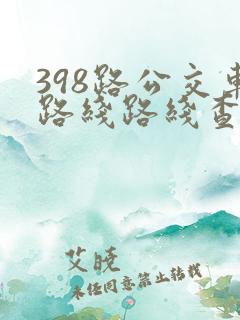 398路公交車
路线路线查
艾晓
未经同意禁止转载